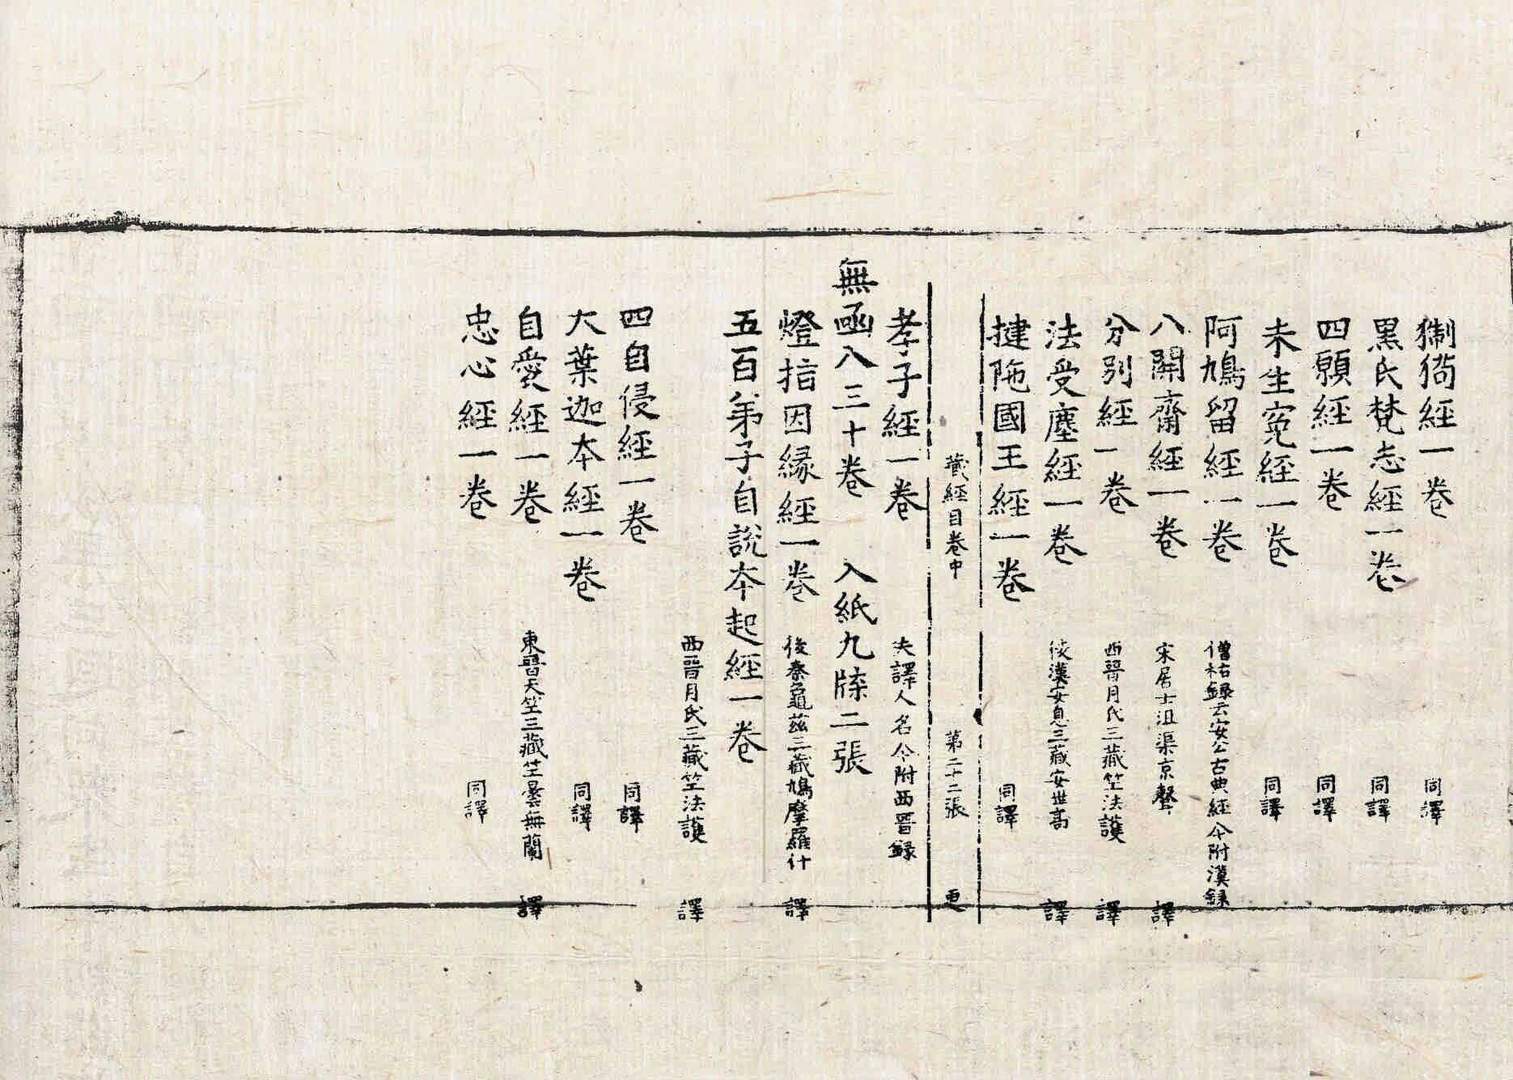 猘狗經一卷 同譯
黒氏梵志經一卷 同譯
四願經一卷 同譯
未生寃經一卷 同譯
阿鳩留經一卷 僧祐録云安公古典經今附漢録
八關齋經一卷 宋居士沮渠京聲 譯
分別經一卷 西晉月氏三藏竺法護 譯
法受塵經一卷 後漢安息三藏安世高 譯
揵陁國王經一卷 同譯
藏經目卷中 第二十二張 更
孝子經一卷 失譯人名今附西晉録
無凾八三十卷 入紙九牒二張
燈指因縁經一卷 後秦龜兹三藏鳩摩羅什 譯
五百弟子自說本起經一卷
西晉月氏三藏竺法護 譯
四自侵經一卷 同譯
大葉迦本經一卷 同譯
自愛經一卷 東晉天竺三藏竺曇無蘭 譯
忠心經一卷 同譯